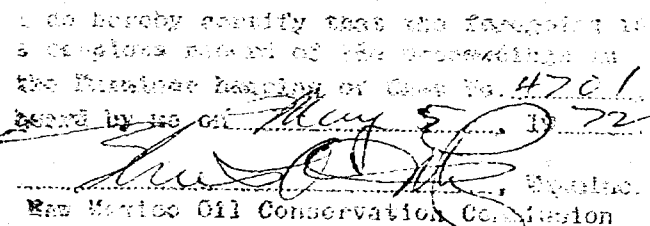 I do hereby certify that the foregoing is
a complete record of the proceedings in
the Examiner hearing of Case No. 4701
heard by me on May 5, 1972
, Examiner
New Mexico Oil Conservation Commission